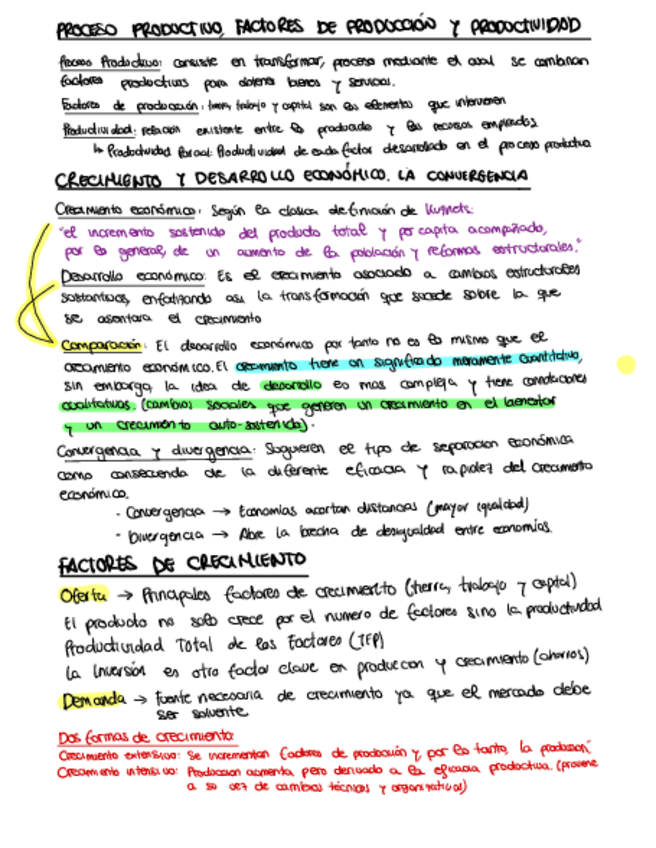 PROCESO PRODUCTIVO, FACTORES DE PRODUCCIÓN Y PRODUCTIVIDAD
Proceso Productivo: consiste en transformar, proceso mediante el cual se combinan
factores productivos para obtener bienes y servicios.
Factores de producción: tierra, trabajo y capital son los elementos que intervienen
Productividad: relación existente entre lo producido y los recursos empleados
↳ Productividad Parcial: Productividad de cada factor desarrollado en el proceso productivo
CRECIMIENTO Y DESARROLLO ECONÓMICO. LA CONVERGENCIA
Crecimiento económico: Según la clásica definición de Kutnets:
"el incremento sostenido del producto total y per capita acompañado,
por lo general, de un aumento de la población y reformas estructurales."
Desarrollo económico: Es el crecimiento asociado a cambios estructurales
sustantivos, enfatizando así la transformación que sucede sobre la que
se asentara el crecimiento
Comparación: El desarrollo económico por tanto no es lo mismo que el
crecimiento económico. El crecimiento tiene un significado meramente cuantitativo,
sin embargo, la idea de desarrollo es mas compleja y tiene connotaciones
cualitativas. (cambios sociales que generen un crecimiento en el bienestar
y un crecimiento auto-sostenido).
Convergencia y divergencia: Sugieren el tipo de separacion económica
como consecuencia de la diferente eficacia y rapidez del crecimiento
económico.
- Convergencia → Economías acortan distancias (mayor igualdad)
- Divergencia → Abre la brecha de desigualdad entre economías.
FACTORES DE CRECIMIENTO
Oferta → Principales factores de crecimiento (tierra, trabajo y capital)
El producto no solo crece por el numero de factores sino la productividad
Productividad Total de los Factores (TFP)
La Inversión es otro factor clave en produccion y crecimiento (ahorros)
Demanda → Fuente necesaria de crecimiento ya que el mercado debe
ser solvente
Dos formas de crecimiento:
Crecimiento extensivo: Se incrementan factores de producción y, por lo tanto, la produccion
Crecimiento intensivo: Produccion aumenta pero derivado a la eficacia productiva. (proviene
a su vez de cambios técnicos y organizativos)